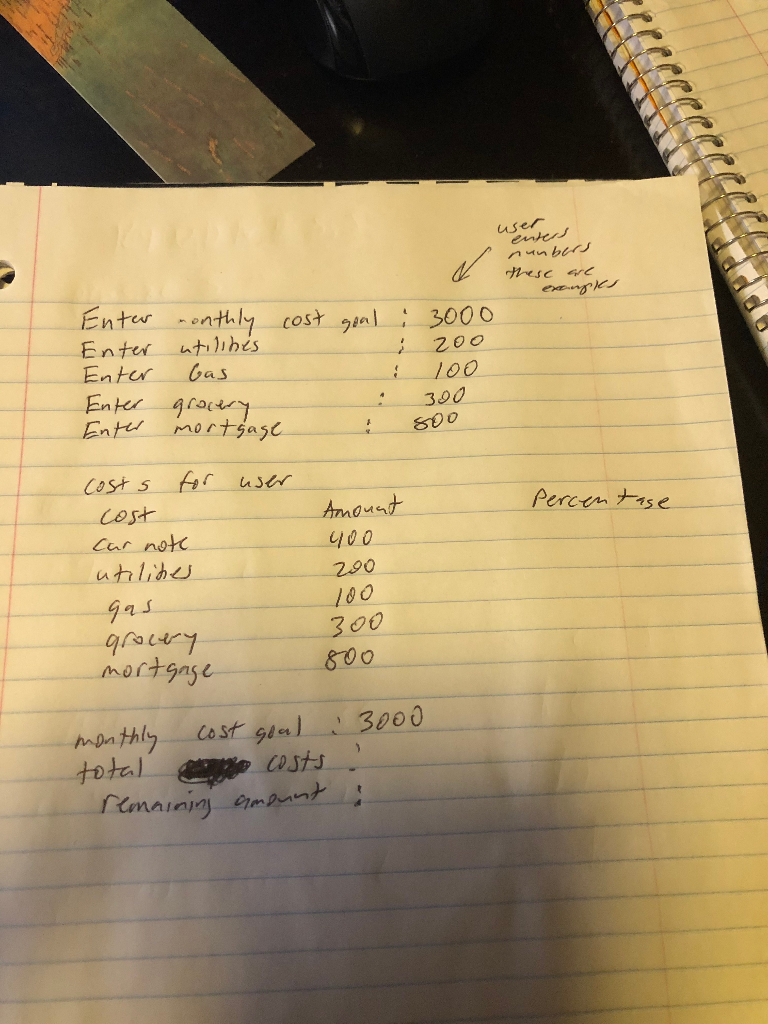 user
enters
numbers
these are
examples
Enter monthly cost goal : 3000
Enter utilities : 200
Enter Gas : 100
Enter grocery : 300
Enter mortgage : 800
costs for user
cost Amount Percentage
car note 400
utilities 200
gas 100
grocery 300
mortgage 800
monthly cost goal : 3000
total costs :
remaining amount :